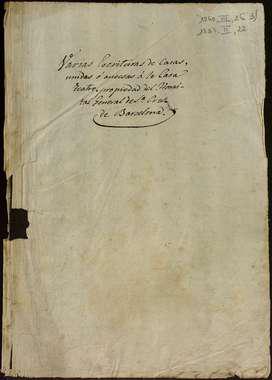 1760, III, 26
1781, III, 22
Várias Escrituras de Casas,
unidas ó anecsas á la Casa
teatro, propiedad del Hospi-
tal General de Sta Cruz
de Barcelona.